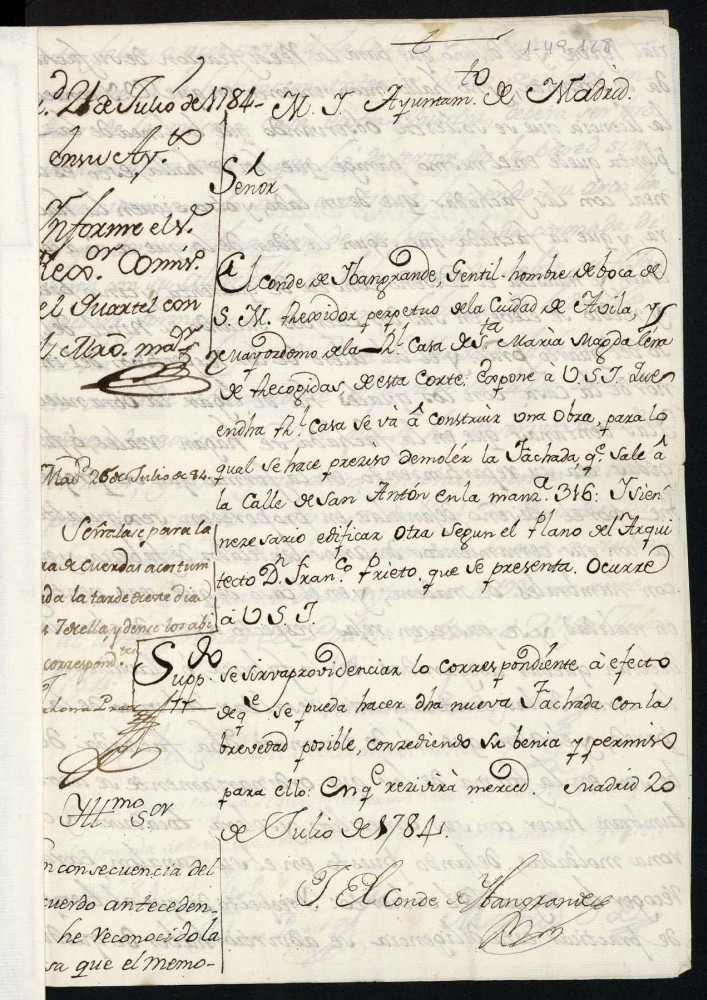 1-49-128
M. Y. Ayuntam.to de Madrid.
Señor
El Conde de Ybangrande, Gentil-hombre de boca de
S. M. Rexidor perpetuo dela Ciudad de Avila, y
Mayordomo dela Rl. Casa de Sta Maria Magdalena
de Recogidas de esta Corte. Expone à V S. I. Que
en dha Rl. Casa se và à construir una Obra, para lo
qual se hace preziso demolér la Fachada, qe. sale à
la Calle de San Antón en la manza. 316: Y sien
nezesario edificar otra segun el Plano del Arqui
tecto Dn. Franco. Prieto, que se presenta. Ocurre
à V S. I.
Suppdo. se sirva providenciar lo correspondiente à efecto
de qe. se pueda hacer dha nueva Fachada con la
brevedad posible, conzediendo su benia y permiso
para ello: En qe rezivirà merced. Madrid 20
de Julio de 1784.
El Conde de Ybangrande
d 21 de Julio de 1784-
en su Ayto
Ynforme el Sr.
Rexor. Comiso.
el Quartel con
Mro. mayr
Madd. 26 de Julio de 84.
Señalase para la
ra de cuerdas acostum
da la tarde de este dia
7 de ella, y dense los abi
correspondtes
Yllmo Sor
n consecuencia del
cuerdo anteceden-
he reconocido la
sa que el memo-